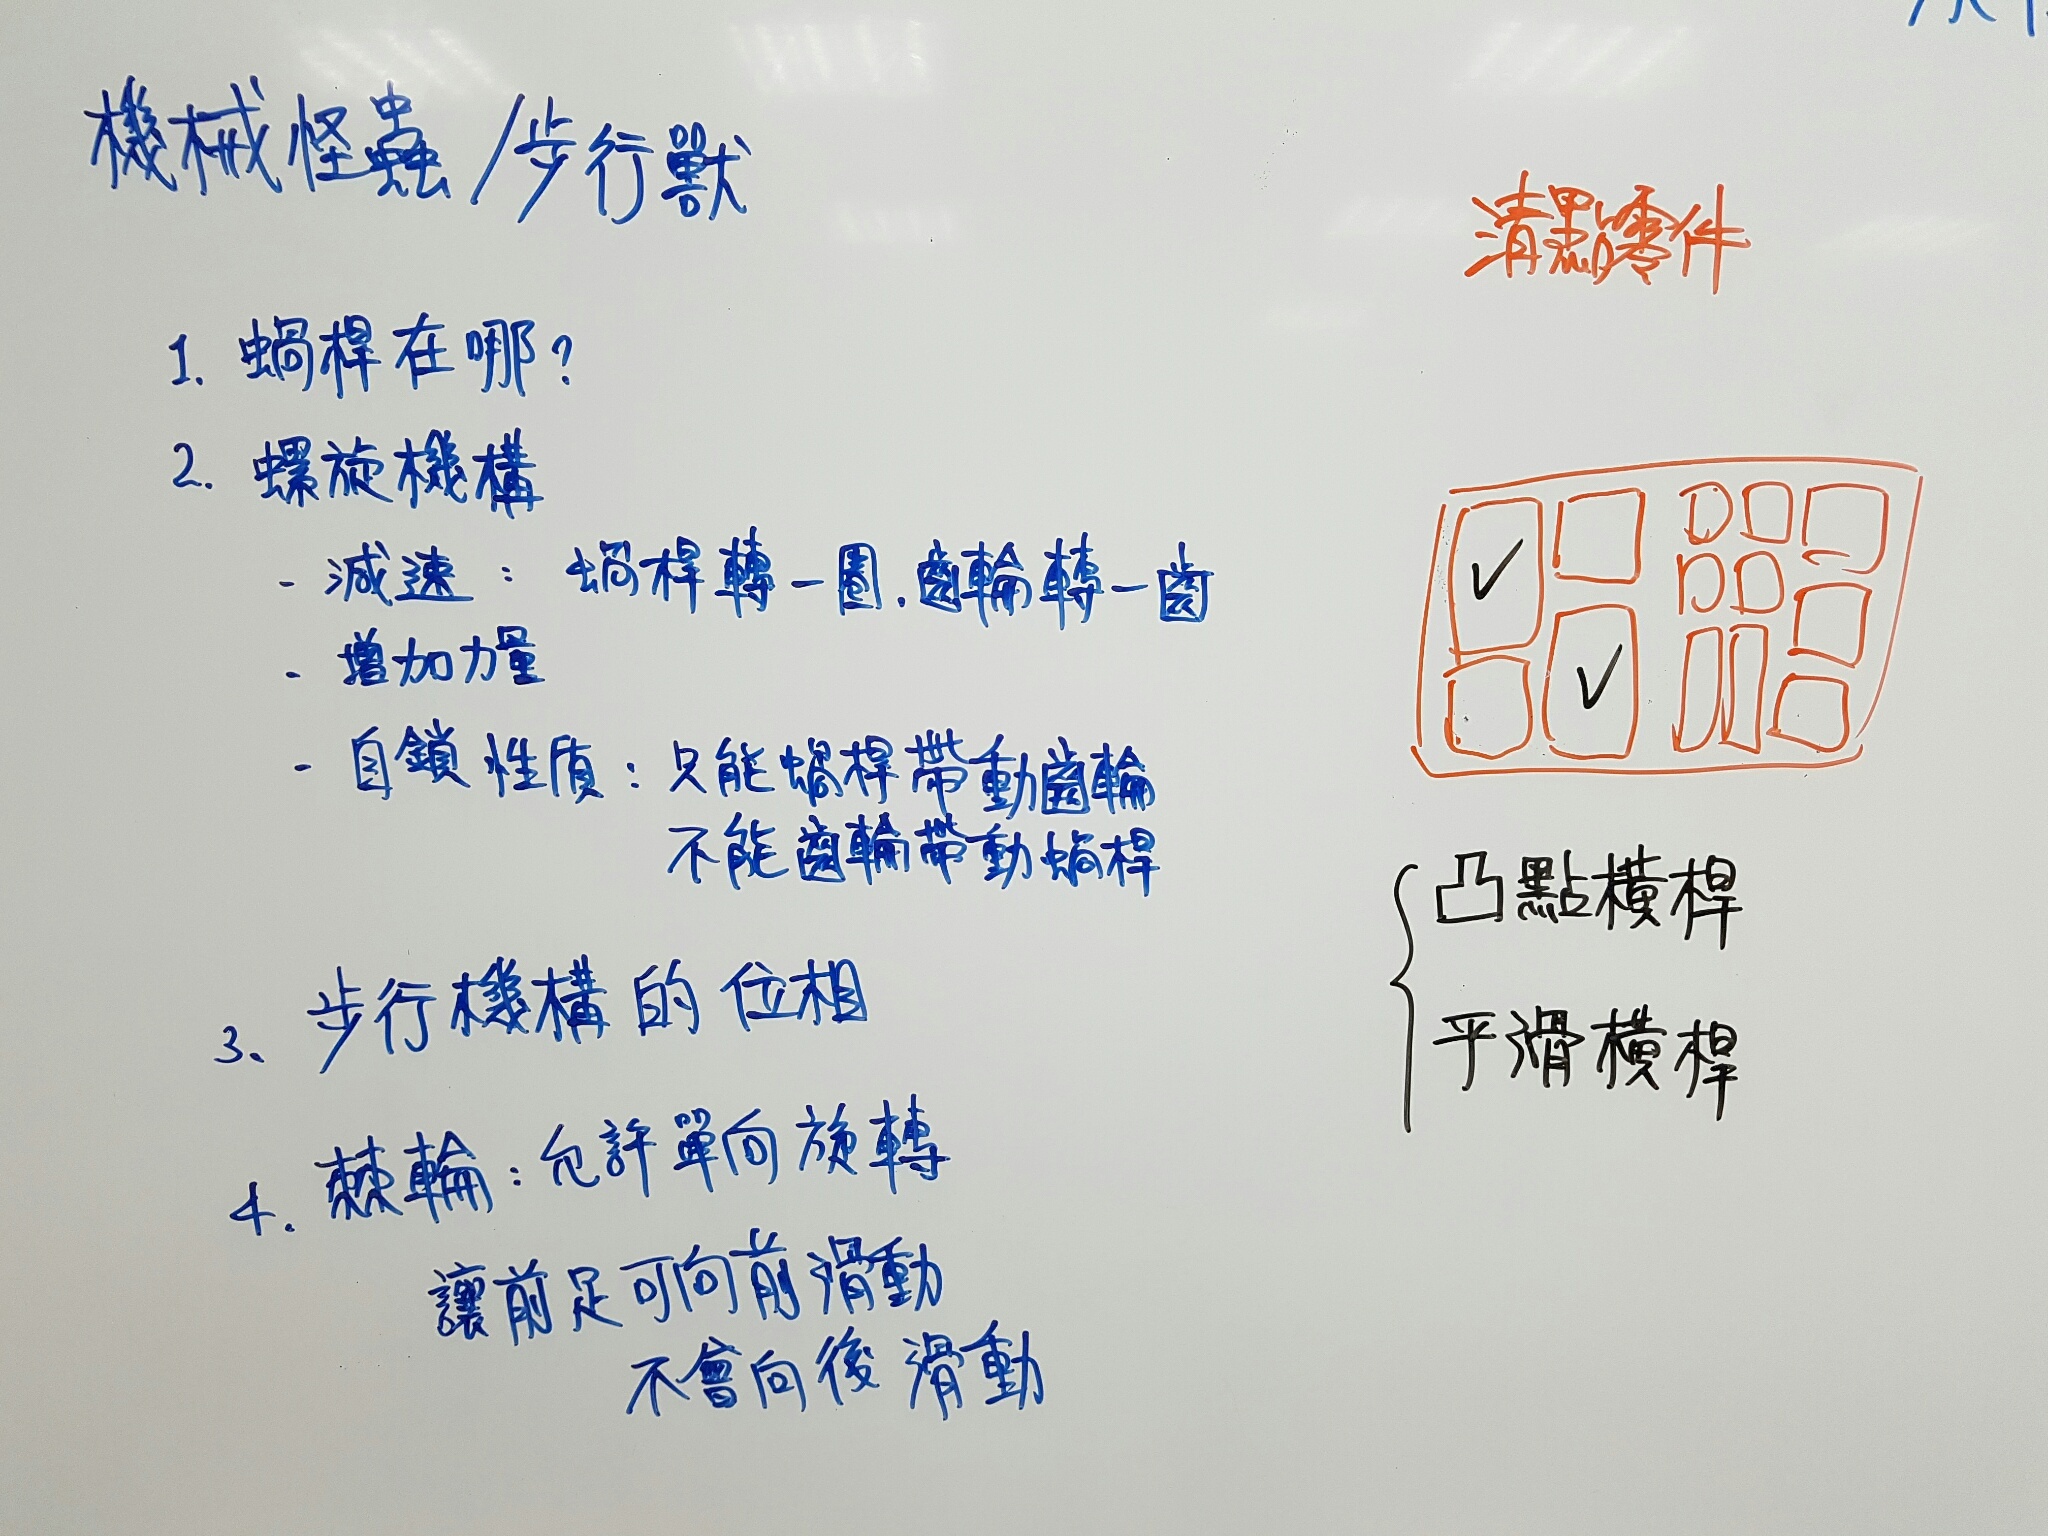 機械怪蟲/步行獸
1. 蝸桿在哪?
2. 螺旋機構
- 減速: 蝸桿轉一圈.齒輪轉一齒
- 增加力量
- 自鎖性質: 只能蝸桿帶動齒輪
不能齒輪帶動蝸桿
3. 步行機構的位相
4. 棘輪: 允許單向旋轉
讓前足可向前滑動
不會向後滑動
清點零件
凸點橫桿
平滑橫桿